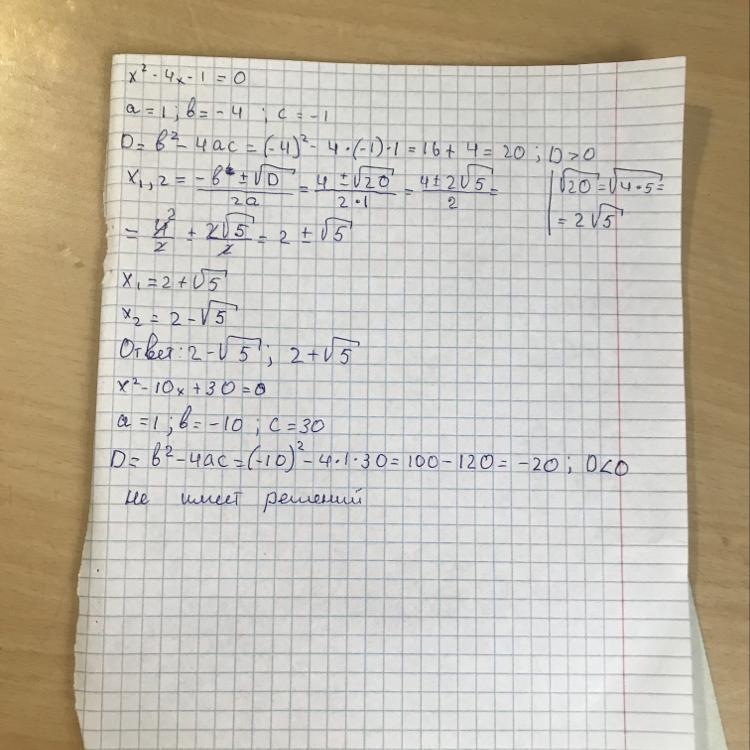 x² - 4x - 1 = 0
a = 1 ; в = - 4 ; c = -1
D = в² - 4ac = (-4)² - 4·(-1)·1 = 16 + 4 = 20 ; D > 0
x₁,₂ = (-в ± √D)/2a = (4 ± √20)/(2·1) = (4 ± 2√5)/2 =
√20 = √4·5 =
= 2√5
= 4/2 ± 2√5/2 = 2 ± √5
x₁ = 2 + √5
x₂ = 2 - √5
Ответ: 2 - √5 ; 2 + √5
x² - 10x + 30 = 0
a = 1 ; в = -10 ; c = 30
D = в² - 4ac = (-10)² - 4·1·30 = 100 - 120 = -20 ; D < 0
не имеет решений